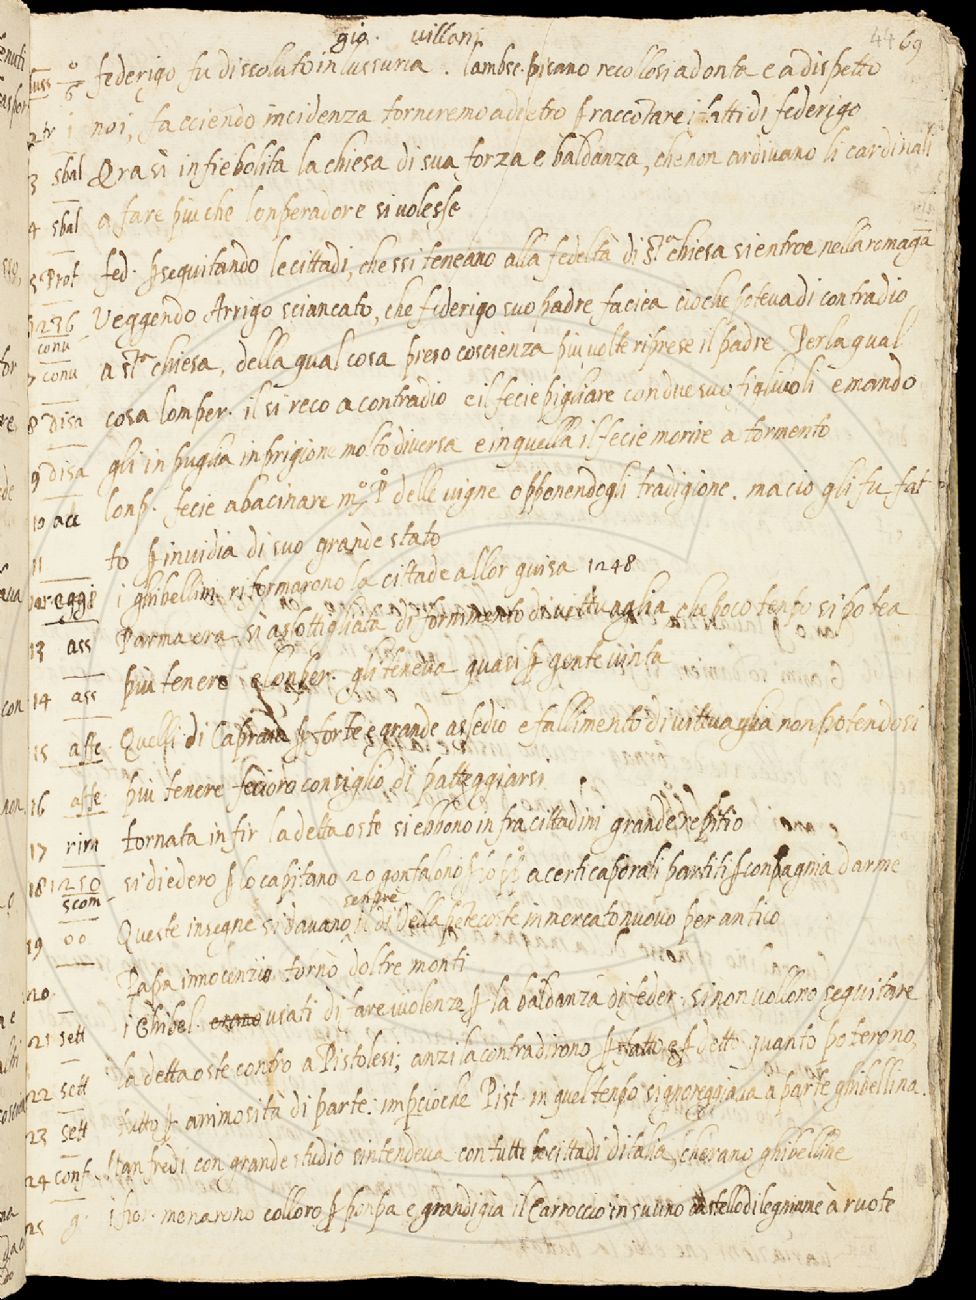 gio. villani
44 69
luss 6 federigo fu dissoluto in lussuria. lambsc. pisano recollosi ad onta e a dispetto
2 tr i noi, facciendo incidenza torneremo addietro p raccontare i fatti di federigo
3 sbal Ora si infiebolita la chiesa di sua forza e baldanza, che non ardivano li cardinali
4 sbal a fare piu che lonperadore si volesse
5 Prot fed. pseguitando le cittadi, che ssi teneano alla fedeltà di Sta chiesa si entroe nella romagā
1236 conv Veggendo Arrigo sciancato, che federigo suo padre facica cioche poteva di contradio
7 conv a Sta chiesa, della qual cosa preso coscienza piu volte riprese il padre Perlaqual
8 disa cosa lomper. il si reco a contradio e il fecie pigliare con due suoi figliuoli e mando
9 disa gli in puglia in prigione molto diversa e in quella il fecie morire a tormento
10 acc lonp. fecie abacinare mo P delle vigne opponendogli tradigione. ma cio gli fu fat
11 to p invidia di suo grande stato
par. eggi i ghibellini riformarono la cittade allor guisa 1248
13 ass Parma era si assottigliata di fornimento di vettuaglia che poco tenpo si potea
14 ass più tenere e lonper. gli teneva quasi p gente vinta
15 affe Quelli di Capraia p forte e grande assedio e fallimento di vittuaglia non potendosi
16 affe più tenere fecioro consiglio di patteggiarsi
17 rim tornata in fir la detta oste si ebbono infra cittadini grande repitio
18 1250 scom si diedero p lo capitano 20 gonfaloni p lo po a certi caporali partiti p conpagnia darme
19 oo Queste insegne si davano senpre il di della pentecoste in mercato nuovo per antico
20 Papa innocenzio tornò doltre monti
21 sett i Ghibel. erano usati di fare violenze p la baldanza di feder. si non vollono seguitare
22 sett la detta oste contro a Pistolesi; anzi la contradirono p fatto e p detto quanto poterono,
23 sett tutto p animosità di parte: impcioche Pist. in quel tenpo signoreggiava a parte ghibellina.
24 conf Manfredi con grande studio sintendeva con tutte le cittadi ditalia, cherano ghibelline
25 g. i fior. menarono colloro p ponpa e grandigia il Carroccio in su uno castello di legname à ruote